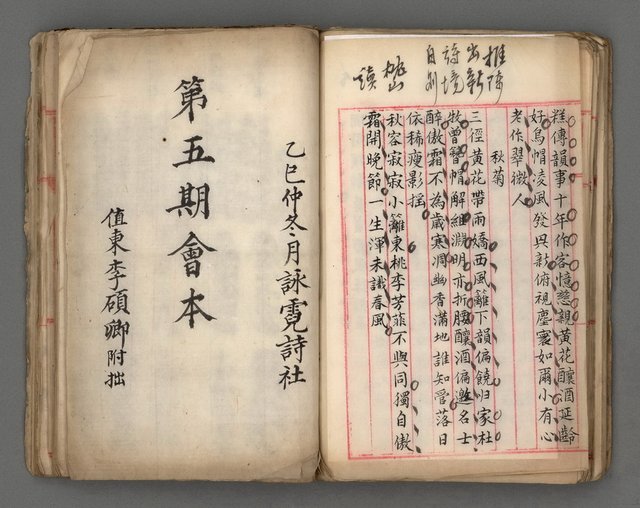 推陳
出新
詩境
自創
桃山
讀
糕傳韻事十年作客憶慈親黃花釀酒延齡
好烏帽凌風發興新俯視塵寰如爾小有心
老作翠微人
秋菊
三徑黃花帶雨嬌西風籬下韻偏饒归家杜
牧曾簪帽解組淵明亦折腰釀酒偏邀名士
醉傲霜不為歲寒凋幽香滿地誰知管落日
依稀瘦影搖
秋容寂寂小籬東桃李芳菲不與同獨自傲
霜開晚節一生渾未識春風
乙巳仲冬月詠霓詩社
第五期會本
值東李碩卿附拙